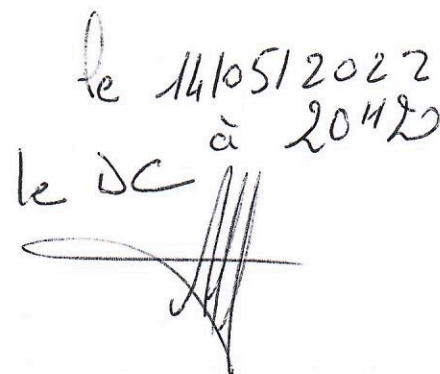 le 14/05/2022
à 20H20
le DC